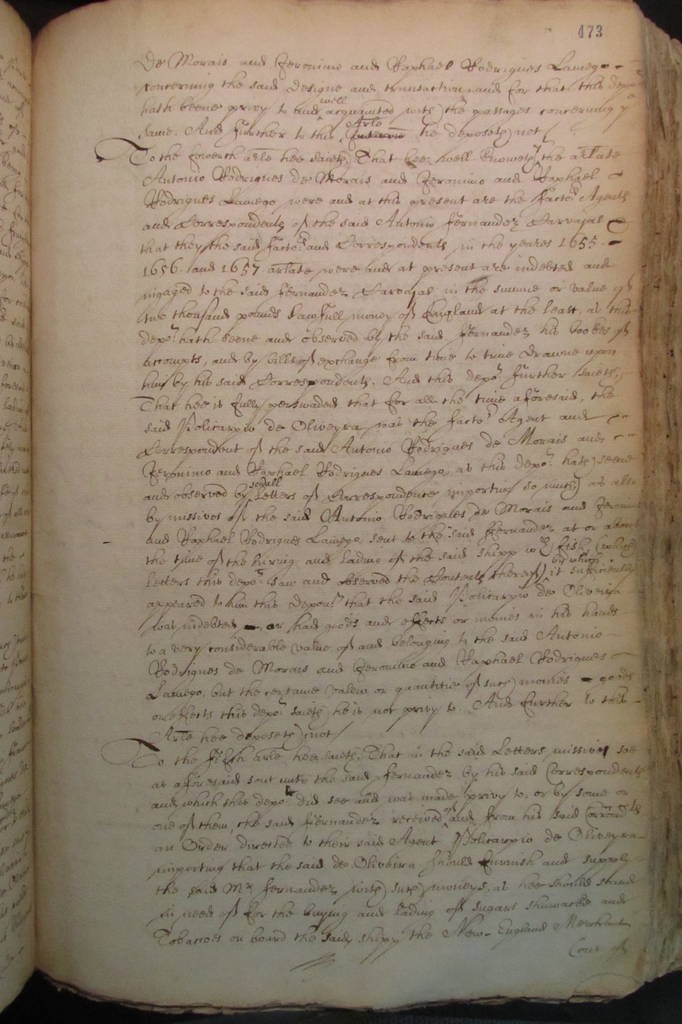 473
De Morais and Jeronimo and Raphael Rodrigues Lamego
concerning the said designe and transaction, and for that this depo:t
hath beene privy to and well acquainted with the passages concerning ye
same. And further to this Arle hee deposeth not
To the fowerth arle hee saieth That hee well knoweth the arlate
Antonio Rodrigues de Morais and Jeronimo and Raphael
Rodrigues Lamego were and at this present are the factors Agents
and Correspondents of the said Antonio Fernandez Carvajal
that they the said factors and Correspondents in the yeares 1655.
1656. and 1657 arlate were and at present are indebted and
ingaged to the said Fernandez Carvajal in the summe or value of
two thousand pounds lawfull money of England at the least, as this
depot hath seene and observed by the said Fernandez his bookes of
Accompts, and by bills of exchange from time to time drawne upon
him by his said Correspondents. And this depot further saieth,
That hee is fully perswaded that for all the time aforesaid, the
said Policarpio de Oliveyra was the factor Agent and
Correspondent of the said Antonio Rodrigues de Morais and
Jeronimo and Raphael Rodrigues Lamego, as this depot hath seene
and observed by severall Letters of Correspondence importing so much, as also
by missives of the said Antonio Rodrigues de Morais and Jeronimo
and Raphael Rodrigues Lamego sent to the said Fernandez at or about
the time of the hiring and lading of the said shipp
letters this depot saw and observed the Contents thereof, by which it sufficiently
appeared to him this deponent that the said Policarpio de Oliveyra
was indebted or had goods and effects or monies in his hands
to a very considerable value of and belonging to the said Antonio
Rodrigues de Morais and Jeronimo and Raphael Rodrigues
Lamego, but the certaine value or quantitie of such monies goods
or effects this depot saieth he is not privy to. And further to this
Arle hee deposeth not
To the fifth arle hee saieth That in the said Letters missives soe
as aforesaid sent unto the said Fernandez by his said Correspondents
and which this depot did see and was made privy to, or by some or
one of them, the said Fernandez received and from his said Correspondents
an Order directed to their said Agent Policarpio de Oliveyra
importing that the said de Oliveira should furnish and supply
the said Mr Fernandez with such moneys, as hee should stand
in need of for the buying and lading of sugars shumacke and
Tobaccoes on board the said shipp the New-England Merchant